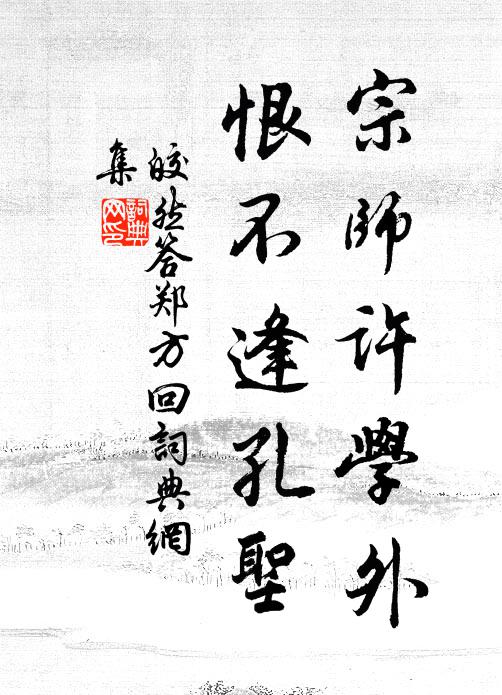 宗師許學外
恨不逢孔聖
皎然答郑方回詞典網
集
詞典
网印